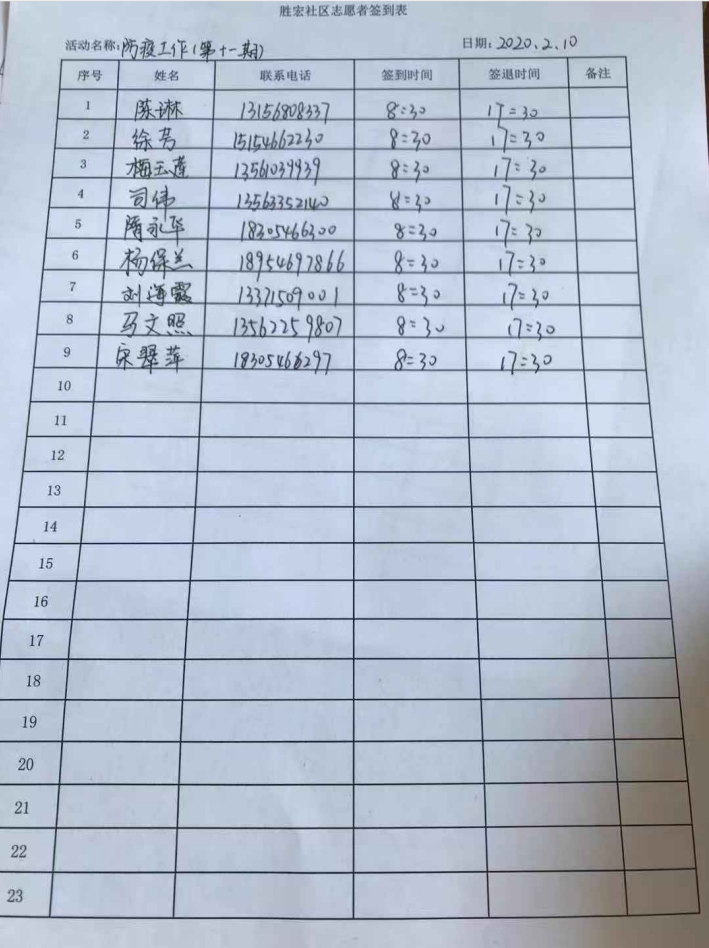 胜宏社区志愿者签到表
活动名称:防疫工作(第十一期) 日期:2020.2.10
序号 姓名 联系电话 签到时间 签退时间 备注
1 陈琳 13156808337 8:30 17:30
2 徐芳 15154662230 8:30 17:30
3 梅玉莲 13561039939 8:30 17:30
4 司伟 13563352140 8:30 17:30
5 隋永华 18305466300 8:30 17:30
6 杨保兰 18954697866 8:30 17:30
7 刘海霞 13371509001 8:30 17:30
8 马文照 13562259807 8:30 17:30
9 宋翠萍 18305466297 8:30 17:30
10
11
12
13
14
15
16
17
18
19
20
21
22
23